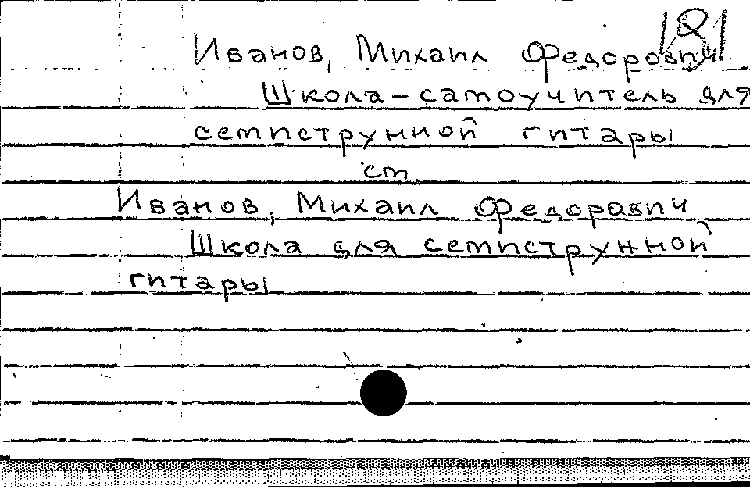 181
Иванов, Михаил Федорович
Школа-самоучитель для
семиструнной гитары
см
Иванов, Михаил Федорович
Школа для семиструнной
гитары